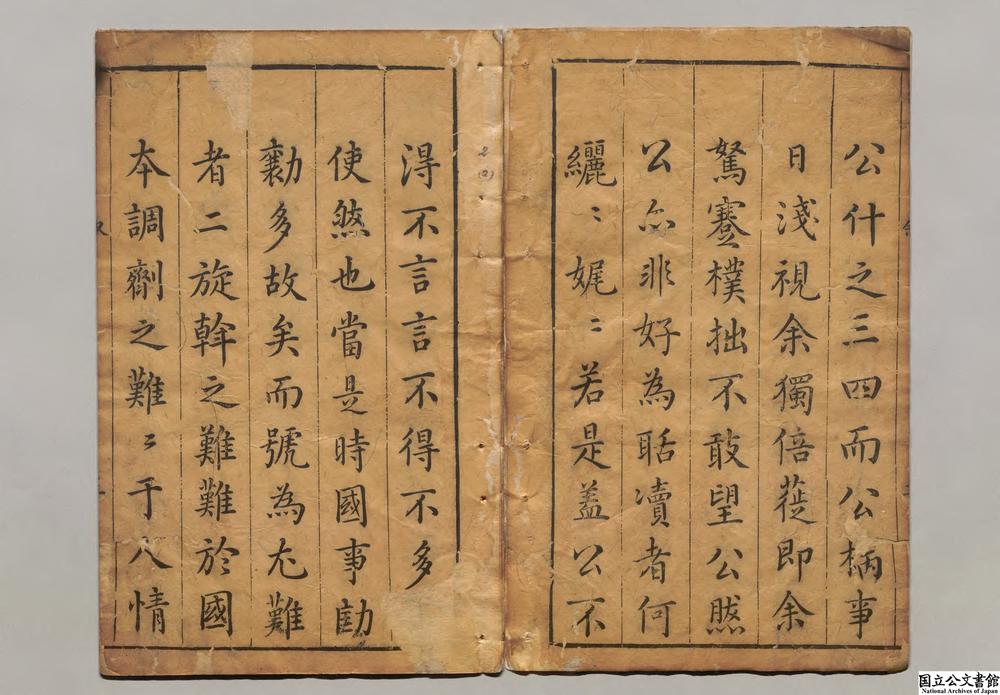 公什之三四而公柄事
日淺視余獨倍蓰即余
駑蹇樸拙不敢望公然
公亦非好為聒瀆者何
纚〻娓〻若是蓋公不
得不言言不得不多
使然也當是時國事
勷多故矣而號為尢難
者二旋斡之難難於國
本調劑之難〻于人情
国立公文書館
National Archives of Japan